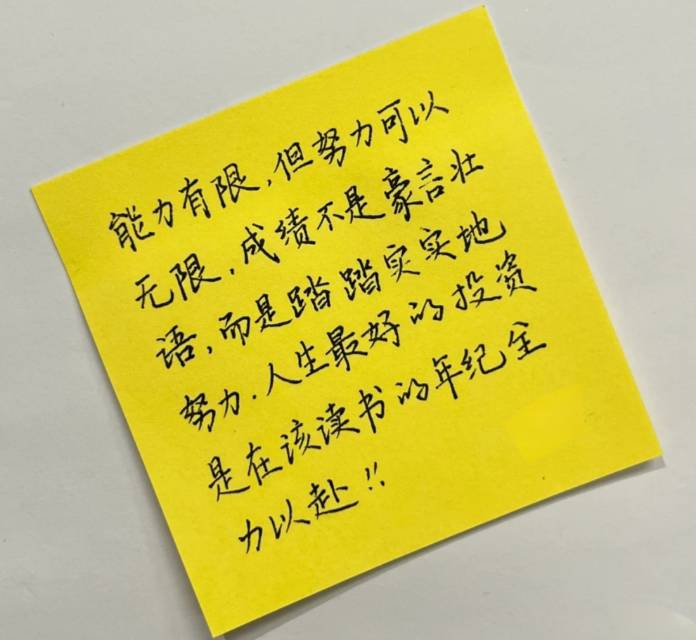 能力有限,但努力可以
无限,成绩不是豪言壮
语,而是踏踏实实地
努力.人生最好的投资
是在该读书的年纪全
力以赴!!